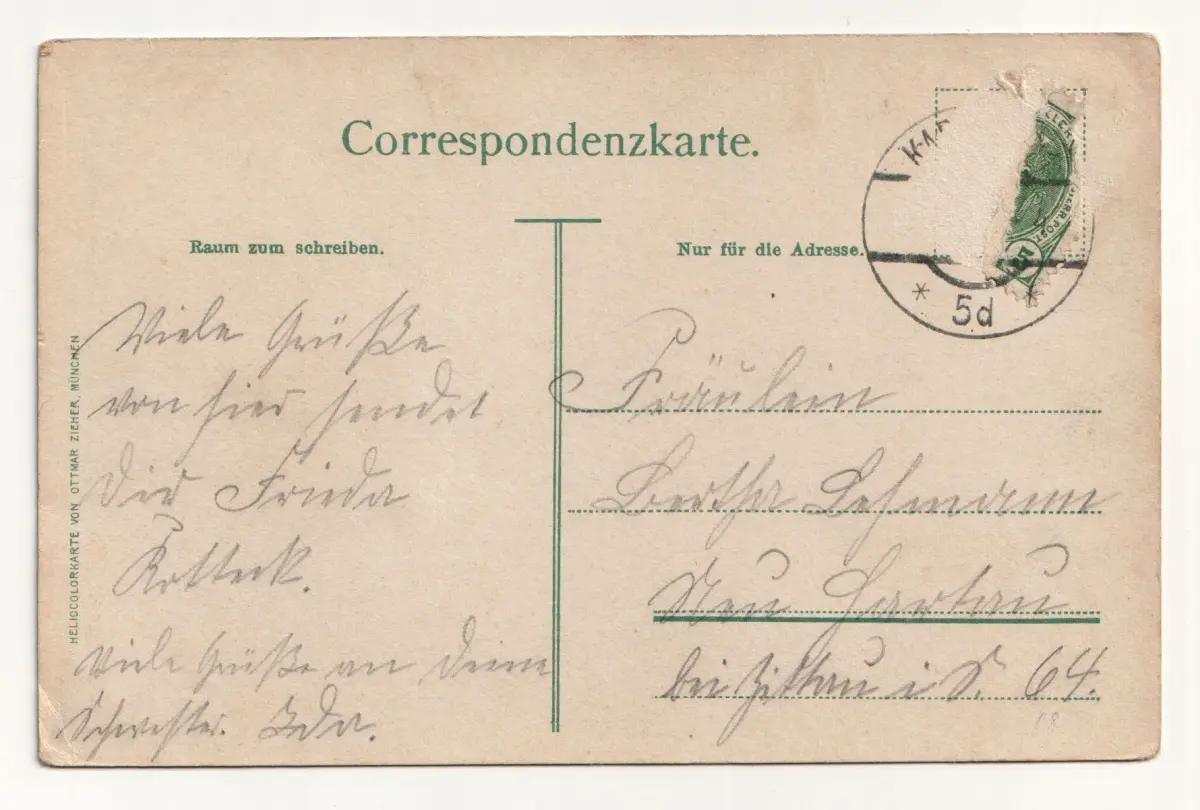 Correspondenzkarte.
Raum zum schreiben.
Nur für die Adresse.
5d
5
Viele Grüße
von hier sendet
Dir Frieda
Kotteck.
Viele Grüße an Deine
Schwester. Ida.
Fräulein
Bertha Lehmann
Neu Hartau
bei Zittau i S. 64.
18
HELIOCOLORKARTE VON OTTMAR ZIEHER, MÜNCHEN